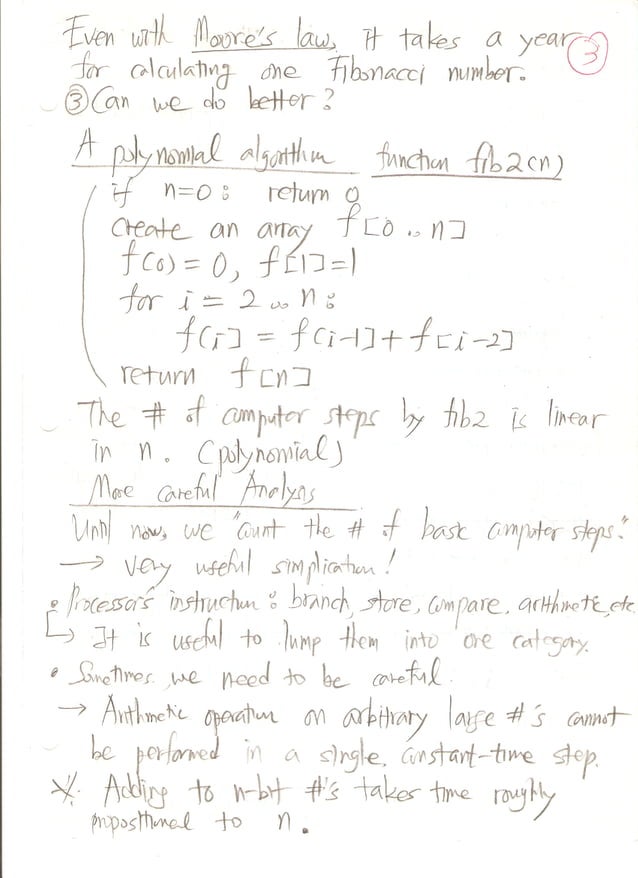 Even with Moore's law, it takes a year
③
for calculating one Fibonacci number.
③ Can we do better?
A polynomial algorithm function fib2(n)
if n=0: return 0
create an array f[0..n]
f(0)=0, f[1]=1
for i = 2..n:
f[i] = f[i-1]+f[i-2]
return f[n]
The # of computer steps by fib2 is linear
in n. (polynomial)
More careful Analysis
Until now, we "count the # of basic computer steps."
→ very useful simplication!
• Processor's instruction: branch, store, compare, arithmetic, etc.
↳ It is useful to lump them into one category.
• Sometimes we need to be careful.
→ Arithmetic operation on arbitrary large #'s cannot
be performed in a single, constant-time step.
※ Adding to n-bit #'s takes time roughly
proportional to n.